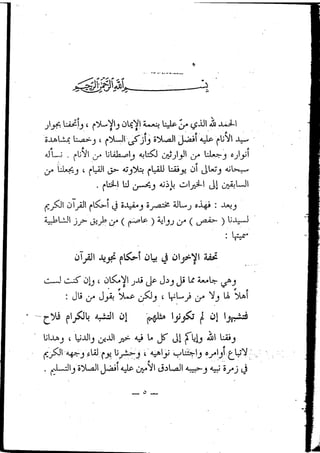 بسم الله الرحمن الرحيم
الحمد لله الذي منّ علينا بنعمة الإيمان والإسلام ، وأتحفنا بجوار
سيد الأنام عليه أفضل الصلاة وأزكى السلام ، وخصنا بمشاهدة
أنواره وجعلنا من الوارثين لكتابه واصطفانا من الأنام . نسأله
سبحانه وتعالى أن يوفقنا للقيام بتلاوته حق القيام ، ويجعلنا من
السابقين إلى الخيرات بإذنه ويحسن لنا الختام .
وبعد : فهذه رسالة مختصرة ومفيدة في أحكام القرآن الكريم
لسيدنا ( حفص ) من رواية ( عاصم ) من طريق حرز الشاطبية
سميتها :
تحفة الإخوان في بيان أحكام تجويد القرآن
وهي جامعة لما قل ودل على قدر الإمكان ، وإن كنت لست
أهلاً لها ولا من فرسانها ، ولكن عملاً بقول من قال :
فتشبهوا إن لم تكونوا مثلهم إن التشبه بالكرام فلاح
وفقنا الله وإياكم إلى كل ما فيه خير الدين والدنيا ، وهدانا
لاتباع أوامره واجتناب نواهيه ، وحشرنا يوم لقاء وجهه الكريم
في زمرة نبيه وحبيبه الصادق الأمين عليه أفضل الصلاة والتسليم .
— ٥ —